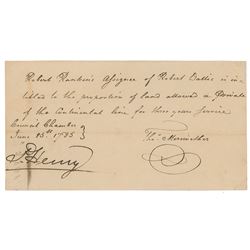 Robert Rankins Assignee of Robert Dattis is in
titled to the proportion of land allowed a Private
of the Continental line for three years Service
Council Chamber
June 23d 1785 } Tho. Meriwether
P. Henry